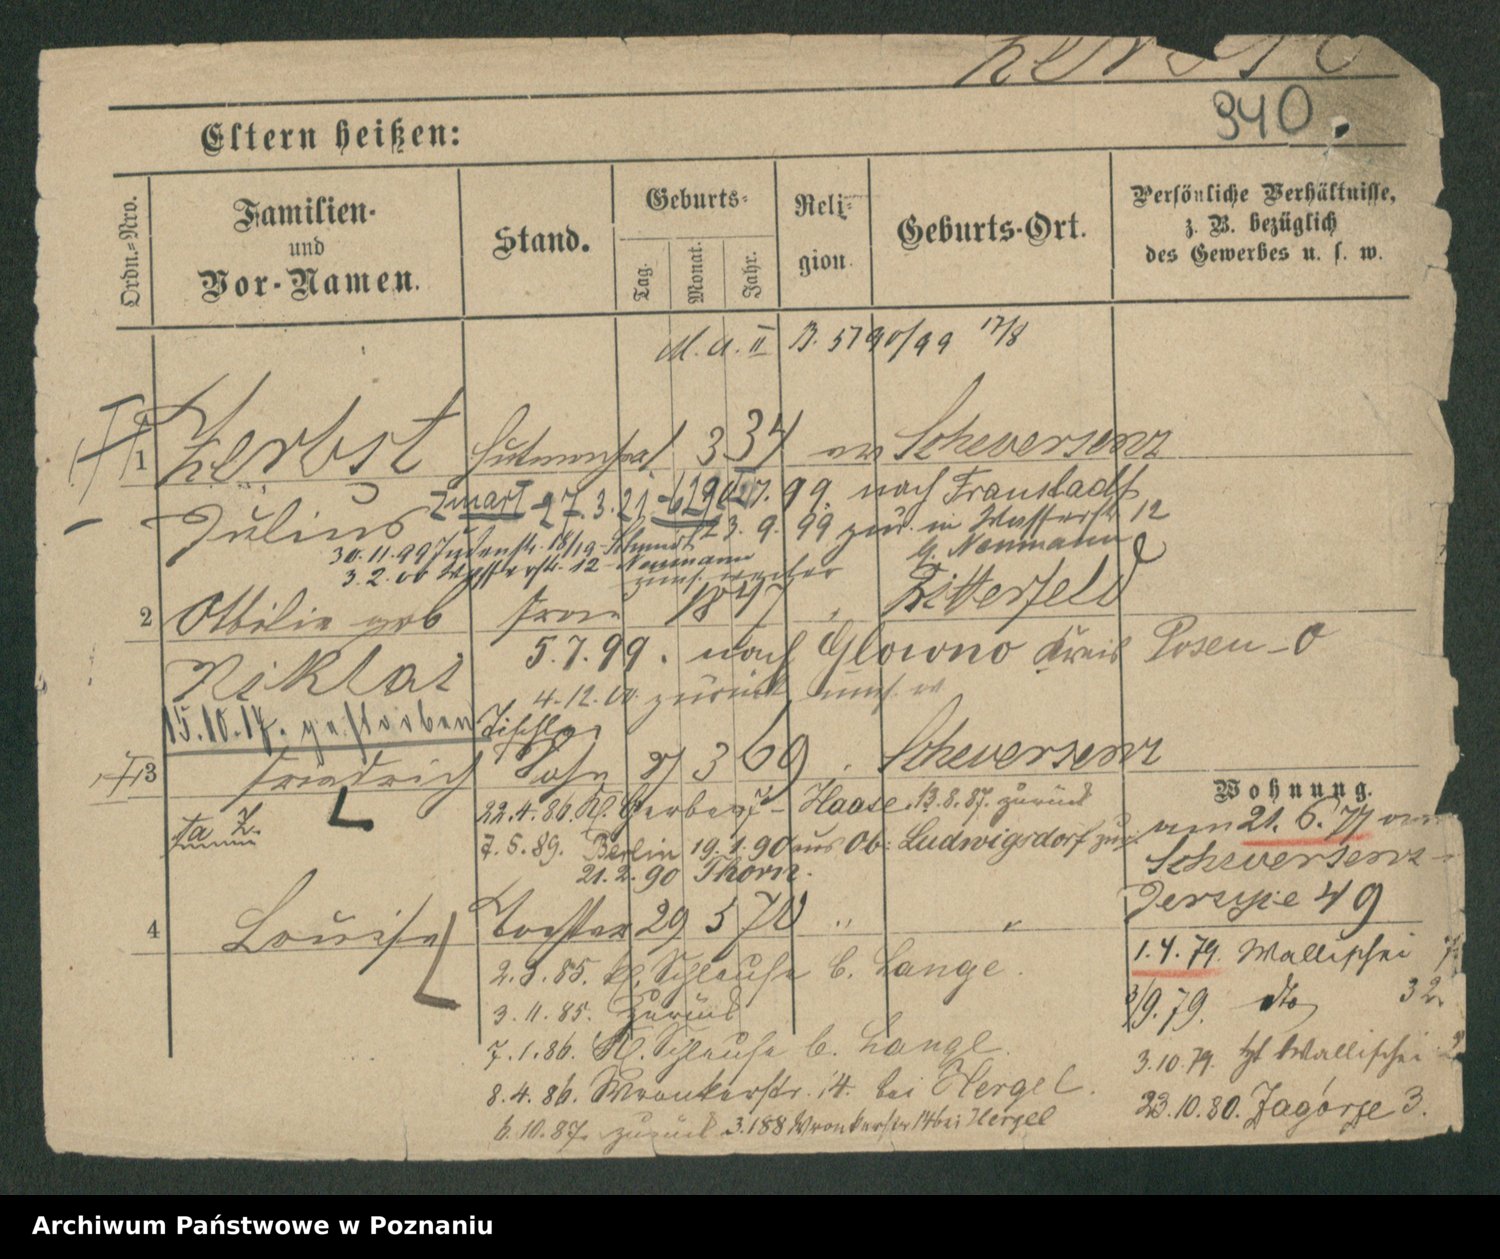 Herbst
940.
Eltern heißen:
Ordn.-Nro.
Familien- und Vor-Namen.
Stand.
Geburts-
Tag. Monat. Jahr.
Reli-gion.
Geburts-Ort.
Persönliche Verhältnisse, z. B. bezüglich des Gewerbes u. s. w.
M. A. II B. 5790/99 17/8
1 Herbst 1 3 37 ev Schwersenz
27.7.99. nach Fraustadt
Julius 27.3.21 23.9.99 zur. in Wasserst 12
30.11.99 Judenstr. 18/19 Schmidt b. Neumann
3.2.00 Wasserstr. 12 Neumann
2 Ottilie geb Frau 1847 " Bitterfeld
5.7.99. nach Glowno Kreis Posen-O
Niklas
4.12.00 zurück
15.10.17. gestorben Tischler
3 Friedrich Sohn 27 3 69 " Schwersenz
Wohnung.
22.4.86. Kl. Gerberst 7 - Haase. 13.8.87. zurück
am 21.6.77 von
7.5.89. Berlin 19.1.90 aus Ob: Ludwigsdorf zur.
Schwersenz
21.2.90 Thorn.
Jersyce 49
4 Louise Tochter 29 5 70 " "
1.4.79. Wallischei
2.3.85. kl. Schleuse b. Lange.
3/9.79. dto 32.
3.11.85. Zurück
7.1.86. Kl. Schleuse b. Lange.
3.10.79. Wallischei
8.4.86. Wronkerstr. 14. bei Hergel.
23.10.80. Zagorze 3.
6.10.87. zurück 3.188 Wronkerstr 14 bei Hergel
Archiwum Państwowe w Poznaniu